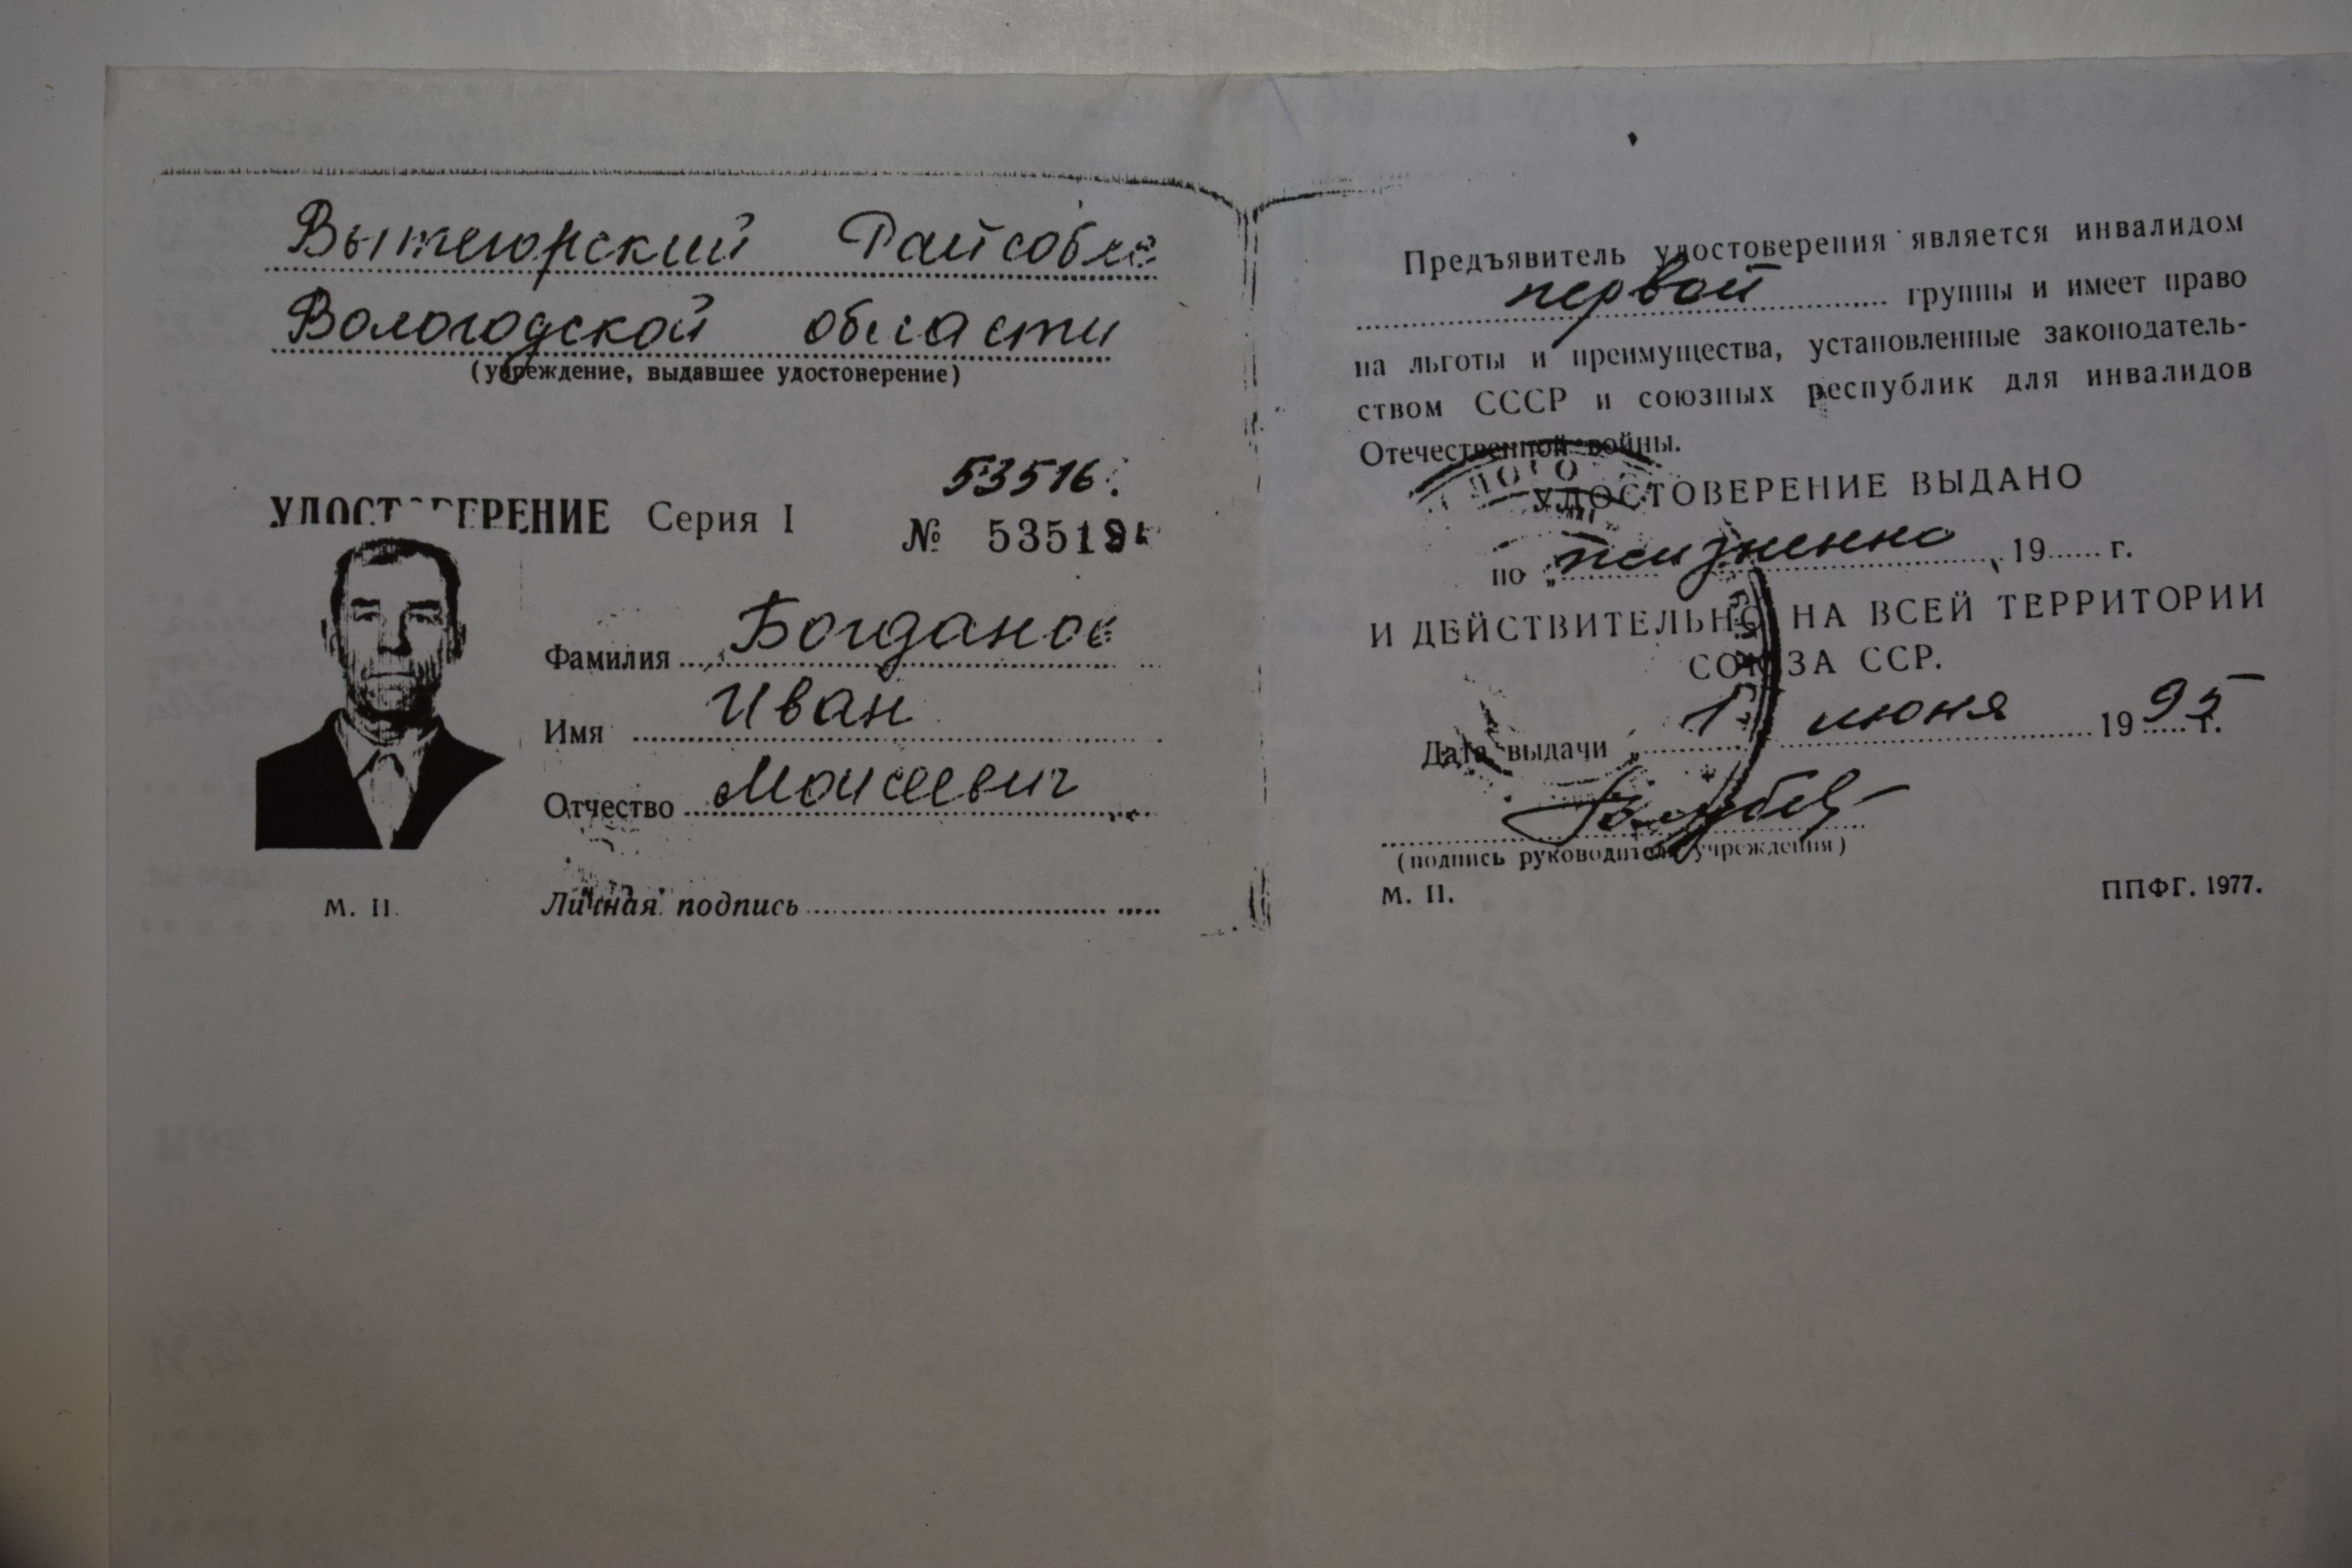 Вытегорский Райсобес
Вологодской области
(учреждение, выдавшее удостоверение)
53516
УДОСТОВЕРЕНИЕ Серия I № 53519
Фамилия Богданов
Имя Иван
Отчество Моисеевич
М. П. Личная подпись
Предъявитель удостоверения является инвалидом
первой группы и имеет право
на льготы и преимущества, установленные законодатель-
ством СССР и союзных республик для инвалидов
Отечественной войны.
УДОСТОВЕРЕНИЕ ВЫДАНО
по „ пожизненно 19 г.
И ДЕЙСТВИТЕЛЬНО НА ВСЕЙ ТЕРРИТОРИИ
СОЮЗА ССР.
Дата выдачи „ 1 июня 1995 г.
(подпись руководителя учреждения)
М. П.
ППФГ. 1977.